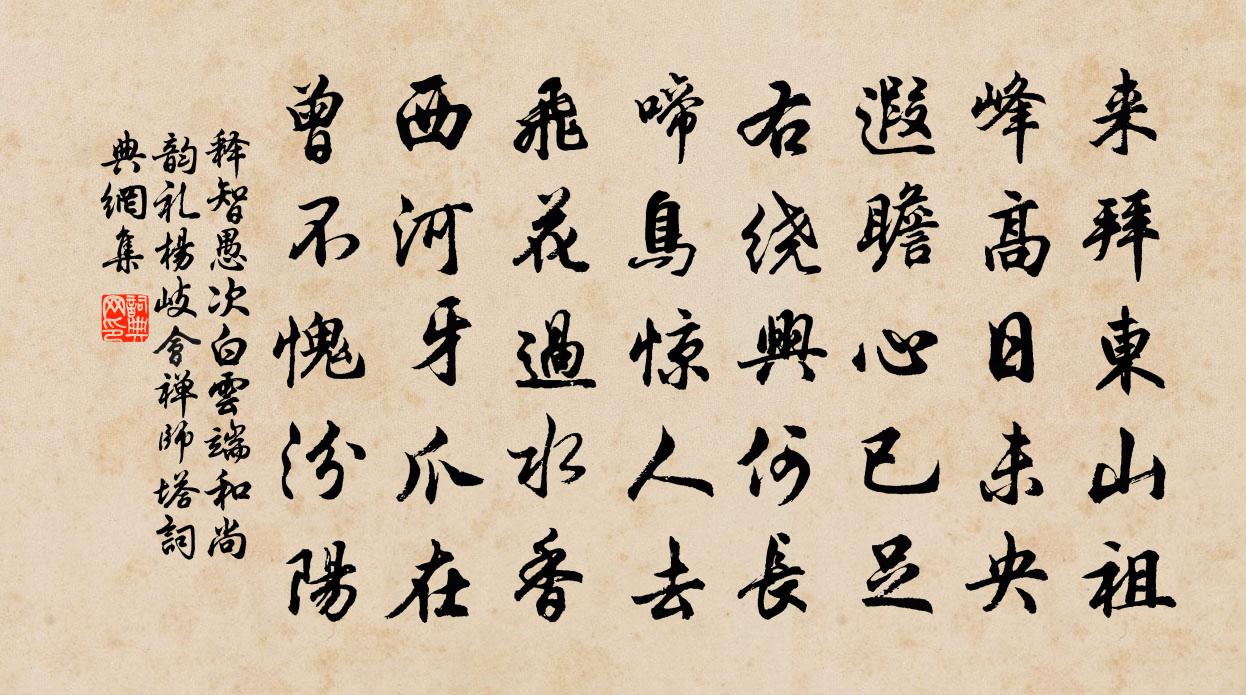 来拜東山祖
峰高日未央
遐瞻心已足
右绕興何長
啼鳥惊人去
飛花過水香
西河牙爪在
曾不愧汾陽
释智愚次白雲端和尚
韵礼楊歧會禅師塔詞
典網集
詞典
网印